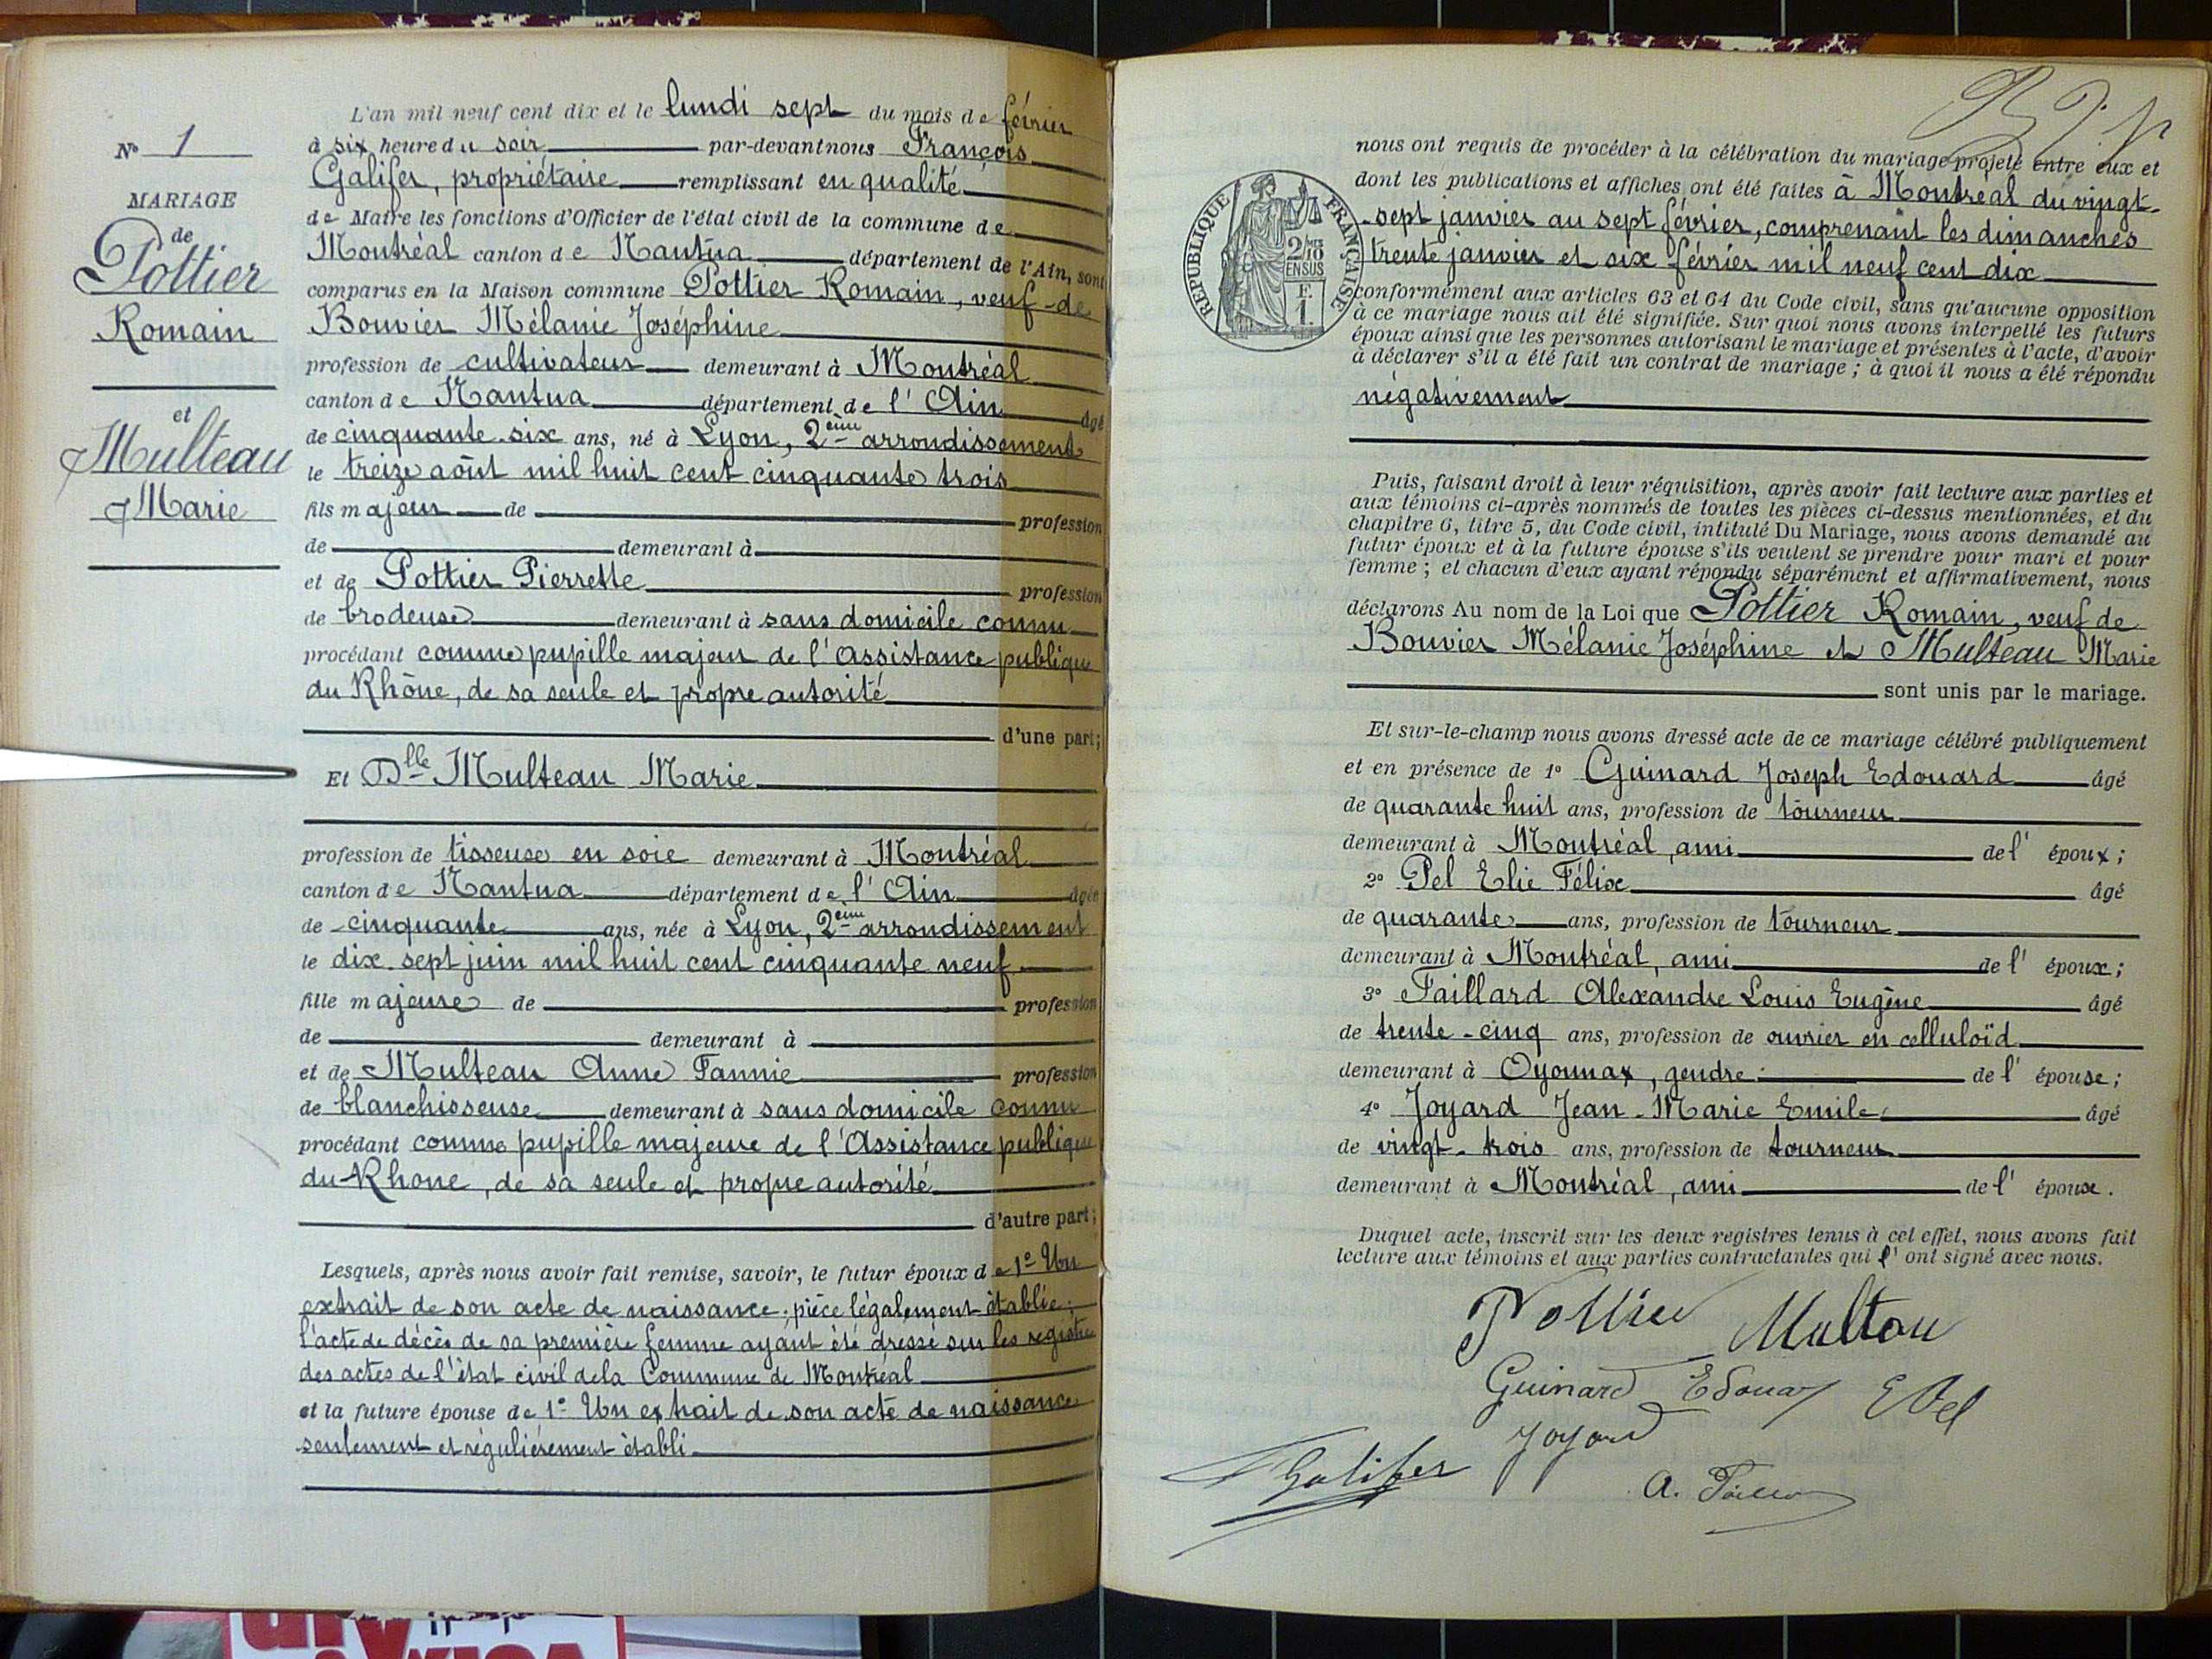 N° 1
MARIAGE
de
Pottier
Romain
et
Multeau
Marie
L'an mil neuf cent dix et le lundi sept du mois de février
à six heure du soir par-devant nous François
Galifer, propriétaire remplissant en qualité
de Maire les fonctions d'Officier de l'état civil de la commune de
Montréal canton de Nantua département de l'Ain, sont
comparus en la Maison commune Pottier Romain, veuf de
Bouvier Mélanie Joséphine
profession de cultivateur demeurant à Montréal
canton de Nantua département de l'Ain âgé
de cinquante-six ans, né à Lyon, 2ème arrondissement
le treize août mil huit cent cinquante trois
fils majeur de profession
de demeurant à
et de Pottier Pierrette profession
de brodeuse demeurant à sans domicile connu
procédant comme pupille majeur de l'Assistance publique
du Rhône, de sa seule et propre autorité
d'une part;
Et Dlle Multeau Marie
profession de tisseuse en soie demeurant à Montréal
canton de Nantua département de l'Ain âgée
de cinquante ans, née à Lyon, 2ème arrondissement
le dix-sept juin mil huit cent cinquante neuf
fille majeure de profession
de demeurant à
et de Multeau Anne Fannie profession
de blanchisseuse demeurant à sans domicile connu
procédant comme pupille majeure de l'Assistance publique
du Rhone, de sa seule et propre autorité
d'autre part;
Lesquels, après nous avoir fait remise, savoir, le futur époux de 1° Un
extrait de son acte de naissance; pièce légalement établie;
l'acte de décès de sa première femme ayant été dressé sur les registres
des actes de l'état civil de la Commune de Montréal
et la future épouse de 1° Un extrait de son acte de naissance
seulement et régulièrement établi
nous ont requis de procéder à la célébration du mariage projeté entre eux et
dont les publications et affiches ont été faites à Montréal du vingt-
sept janvier au sept février, comprenant les dimanches
trente janvier et six février mil neuf cent dix
RÉPUBLIQUE FRANÇAISE
2/10 MES
EN SUS
F.
1.
conformément aux articles 63 et 64 du Code civil, sans qu'aucune opposition
à ce mariage nous ait été signifiée. Sur quoi nous avons interpellé les futurs
époux ainsi que les personnes autorisant le mariage et présentes à l'acte, d'avoir
à déclarer s'il a été fait un contrat de mariage; à quoi il nous a été répondu
négativement
Puis, faisant droit à leur réquisition, après avoir fait lecture aux parties et
aux témoins ci-après nommés de toutes les pièces ci-dessus mentionnées, et du
chapitre 6, titre 5, du Code civil, intitulé Du Mariage, nous avons demandé au
futur époux et à la future épouse s'ils veulent se prendre pour mari et pour
femme; et chacun d'eux ayant répondu séparément et affirmativement, nous
déclarons Au nom de la Loi que Pottier Romain, veuf de
Bouvier Mélanie Joséphine et Multeau Marie
sont unis par le mariage.
Et sur-le-champ nous avons dressé acte de ce mariage célébré publiquement
et en présence de 1° Guinard Joseph Edouard âgé
de quarante huit ans, profession de tourneur
demeurant à Montréal, ami de l'époux;
2° Pel Elie Félix âgé
de quarante ans, profession de tourneur
demeurant à Montréal, ami de l'époux;
3° Taillard Alexandre Louis Eugène âgé
de trente-cinq ans, profession de ouvrier en celluloïd
demeurant à Oyonnax, gendre de l'épouse;
4° Joyard Jean-Marie Emile âgé
de vingt-trois ans, profession de tourneur
demeurant à Montréal, ami de l'épouse.
Duquel acte, inscrit sur les deux registres tenus à cet effet, nous avons fait
lecture aux témoins et aux parties contractantes qui l'ont signé avec nous.
Pottier Multou
Guinard Edouar E Pel
Joyard
Galifer
A.